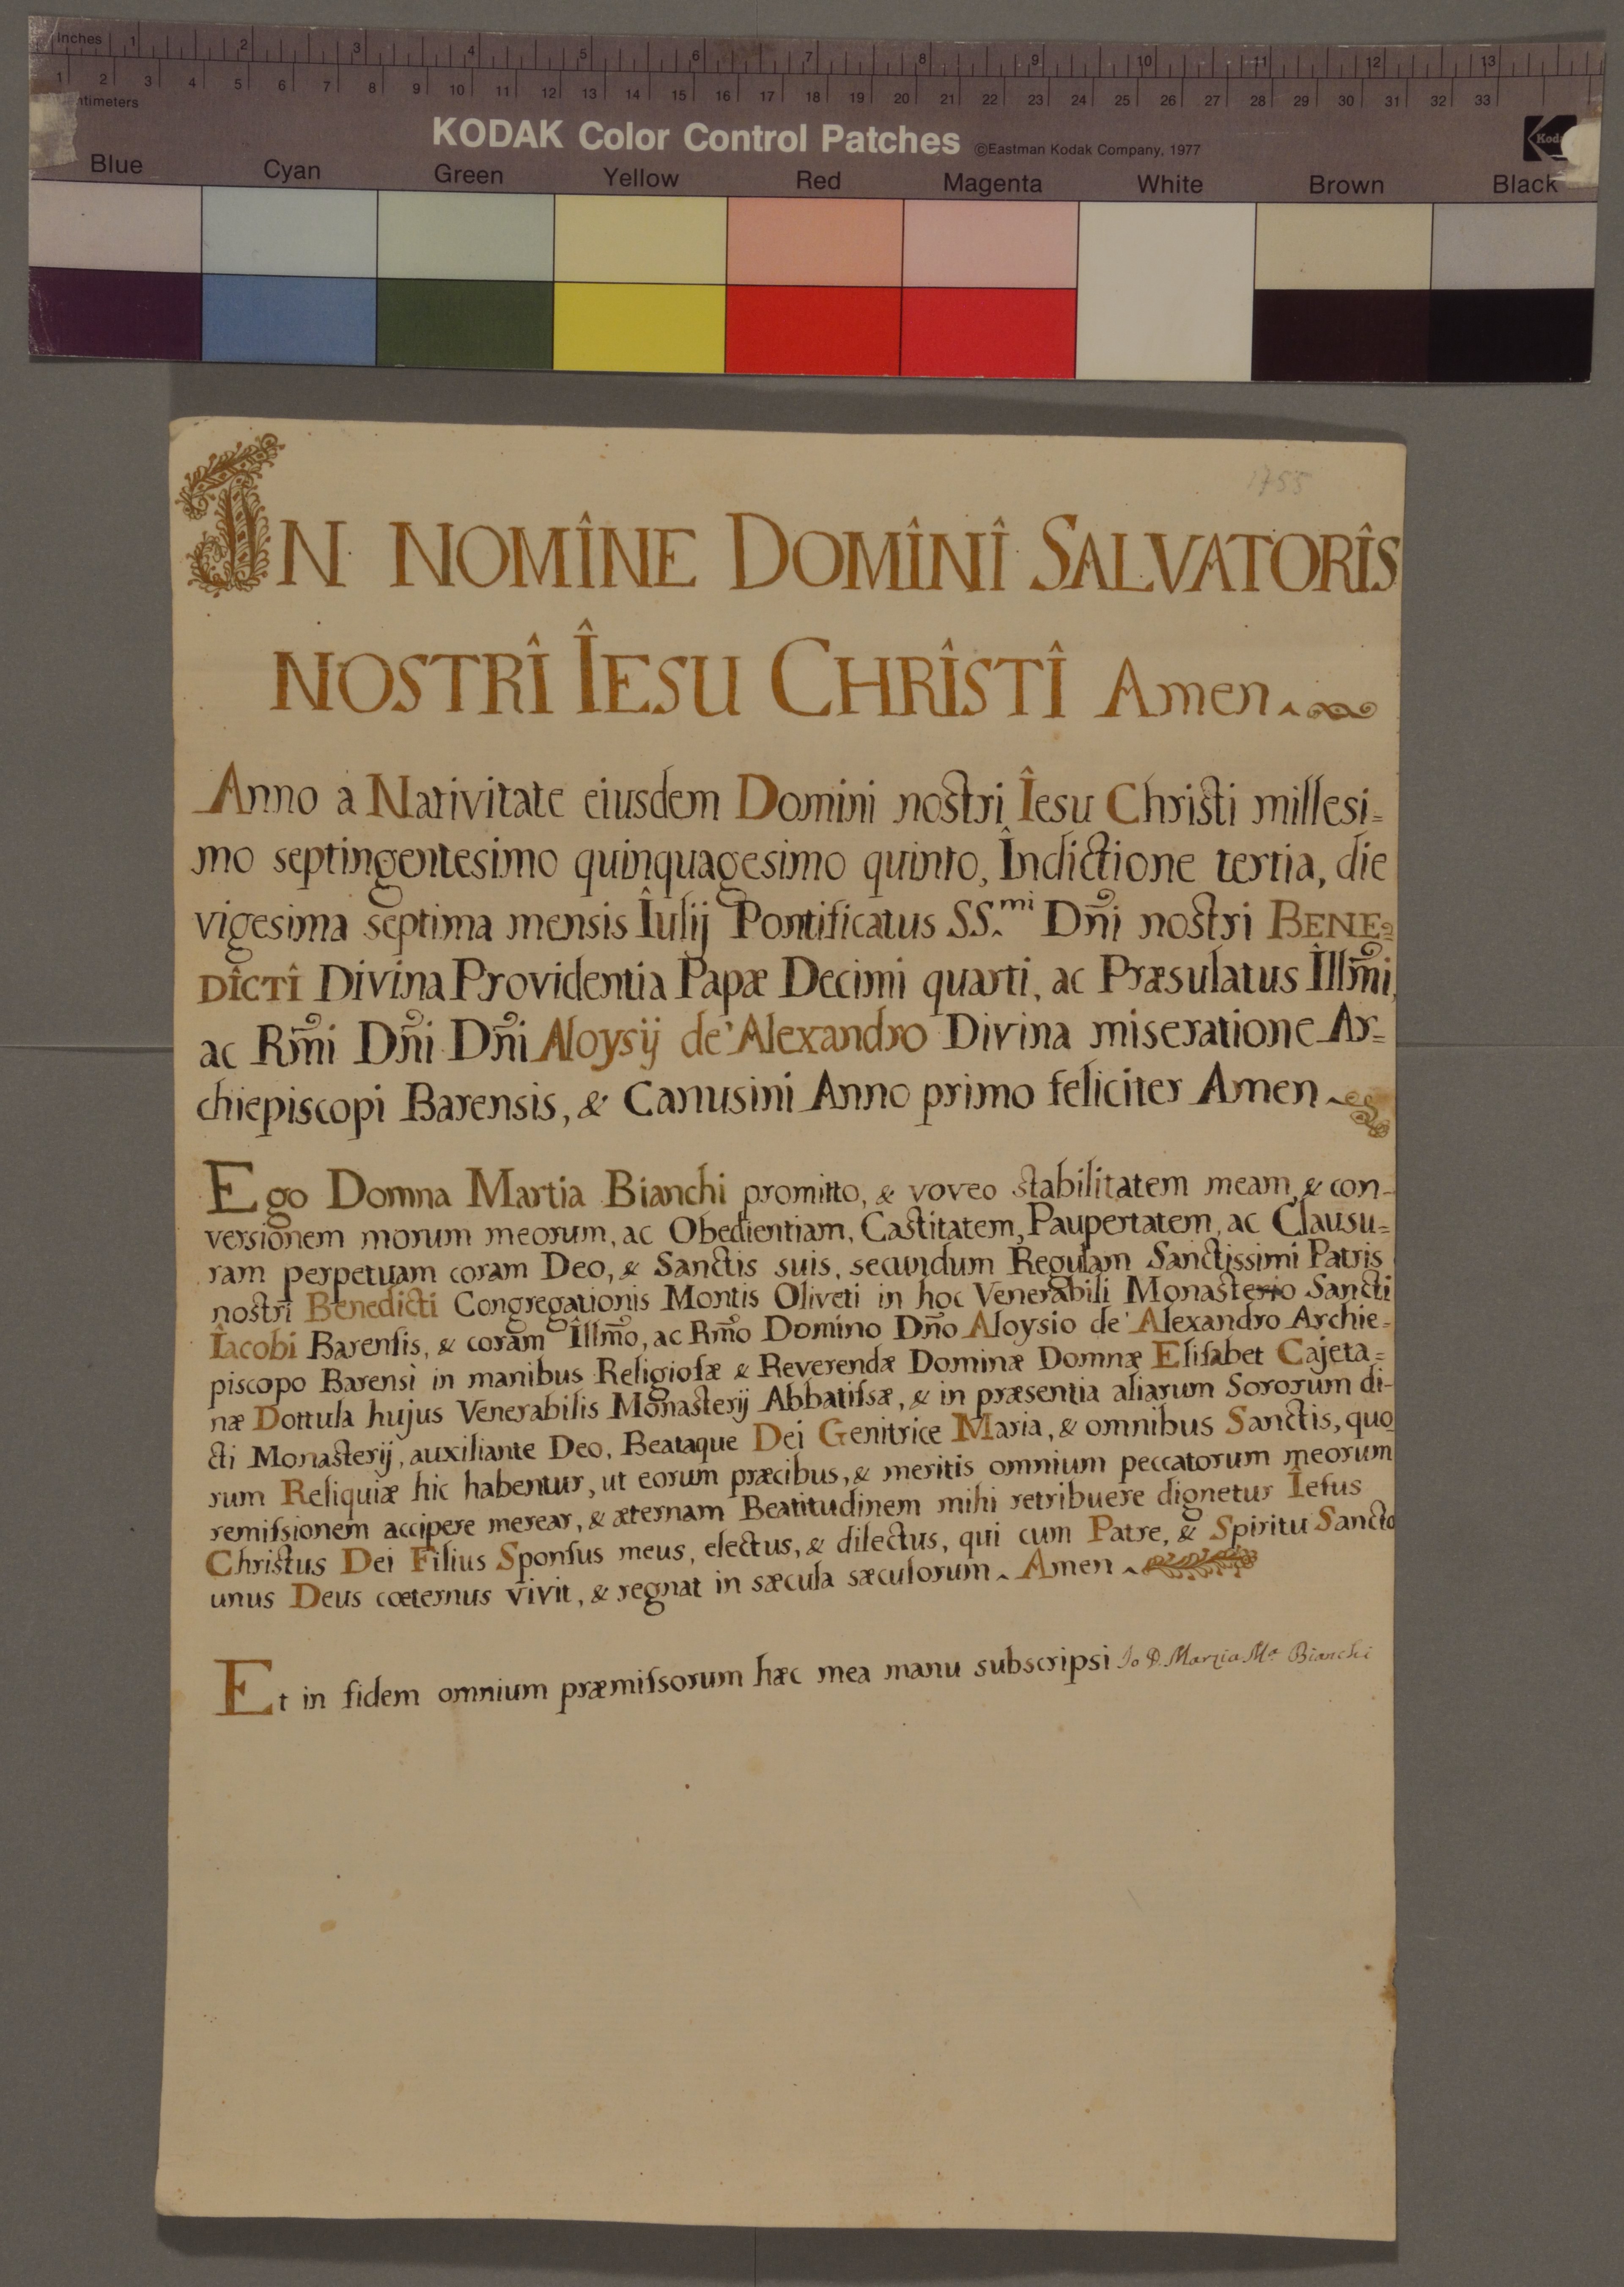 Inches 1 2 3 4 5 6 7 8 9 10 11 12 13
1 2 3 4 5 6 7 8 9 10 11 12 13 14 15 16 17 18 19 20 21 22 23 24 25 26 27 28 29 30 31 32 33
ntimeters
KODAK Color Control Patches ©Eastman Kodak Company, 1977 Kod
Blue Cyan Green Yellow Red Magenta White Brown Black
1755
IN NOMÎNE DOMÎNÎ SALVATORÎS
NOSTRÎ ÎESU CHRÎSTÎ Amen
Anno a Nativitate eiusdem Domini nostri Îesu Christi millesi=
mo septingentesimo quinquagesimo quinto, Îndictione tertia, die
vigesima septima mensis Îulij Pontificatus SS.mi Dñi nostri BENE=
DÎCTÎ Divina Providentia Papæ Decimi quarti, ac Præsulatus Îllm̃i,
ac Rm̃i Dñi Dñi Aloysij de' Alexandro Divina miseratione Ar=
chiepiscopi Barensis, & Canusini Anno primo feliciter Amen
Ego Domna Martia Bianchi promitto, & voveo stabilitatem meam, & con-
versionem morum meorum, ac Obedientiam, Castitatem, Paupertatem, ac Clausu=
ram perpetuam coram Deo, & Sanctis suis, secundum Regulam Sanctissimi Patris
nostri Benedicti Congregationis Montis Oliveti in hoc Venerabili Monasterio Sancti
Îacobi Barensis, & coram Îllm̃o, ac Rm̃o Domino Dño Aloysio de' Alexandro Archie-
piscopo Barensi in manibus Religiosæ & Reverendæ Dominæ Domnæ Elisabet Cajeta=
næ Dottula hujus Venerabilis Monasterij Abbatissæ, & in præsentia aliarum Sororum di-
cti Monasterij, auxiliante Deo, Beataque Dei Genitrice Maria, & omnibus Sanctis, quo
rum Reliquiæ hic habentur, ut eorum præcibus, & meritis omnium peccatorum meorum
remissionem accipere merear, & æternam Beatitudinem mihi retribuere dignetur Îesus
Christus Dei Filius Sponsus meus, electus, & dilectus, qui cum Patre, & Spiritu Sancto
unus Deus cœternus vivit, & regnat in sæcula sæculorum. Amen
Et in fidem omnium præmissorum hæc mea manu subscripsi Io D. Marzia Ma Bianchi